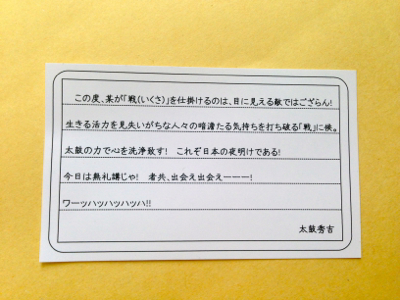 この度、某が「戦(いくさ)」を仕掛けるのは、目に見える敵ではござらん!
生きる活力を見失いがちな人々の暗澹たる気持ちを打ち破る「戦」に候。
太鼓の力で心を洗浄致す! これぞ日本の夜明けである!
今日は無礼講じゃ! 者共、出会え出会えーーー!
ワーッハッハッハッハ!!
太鼓秀吉